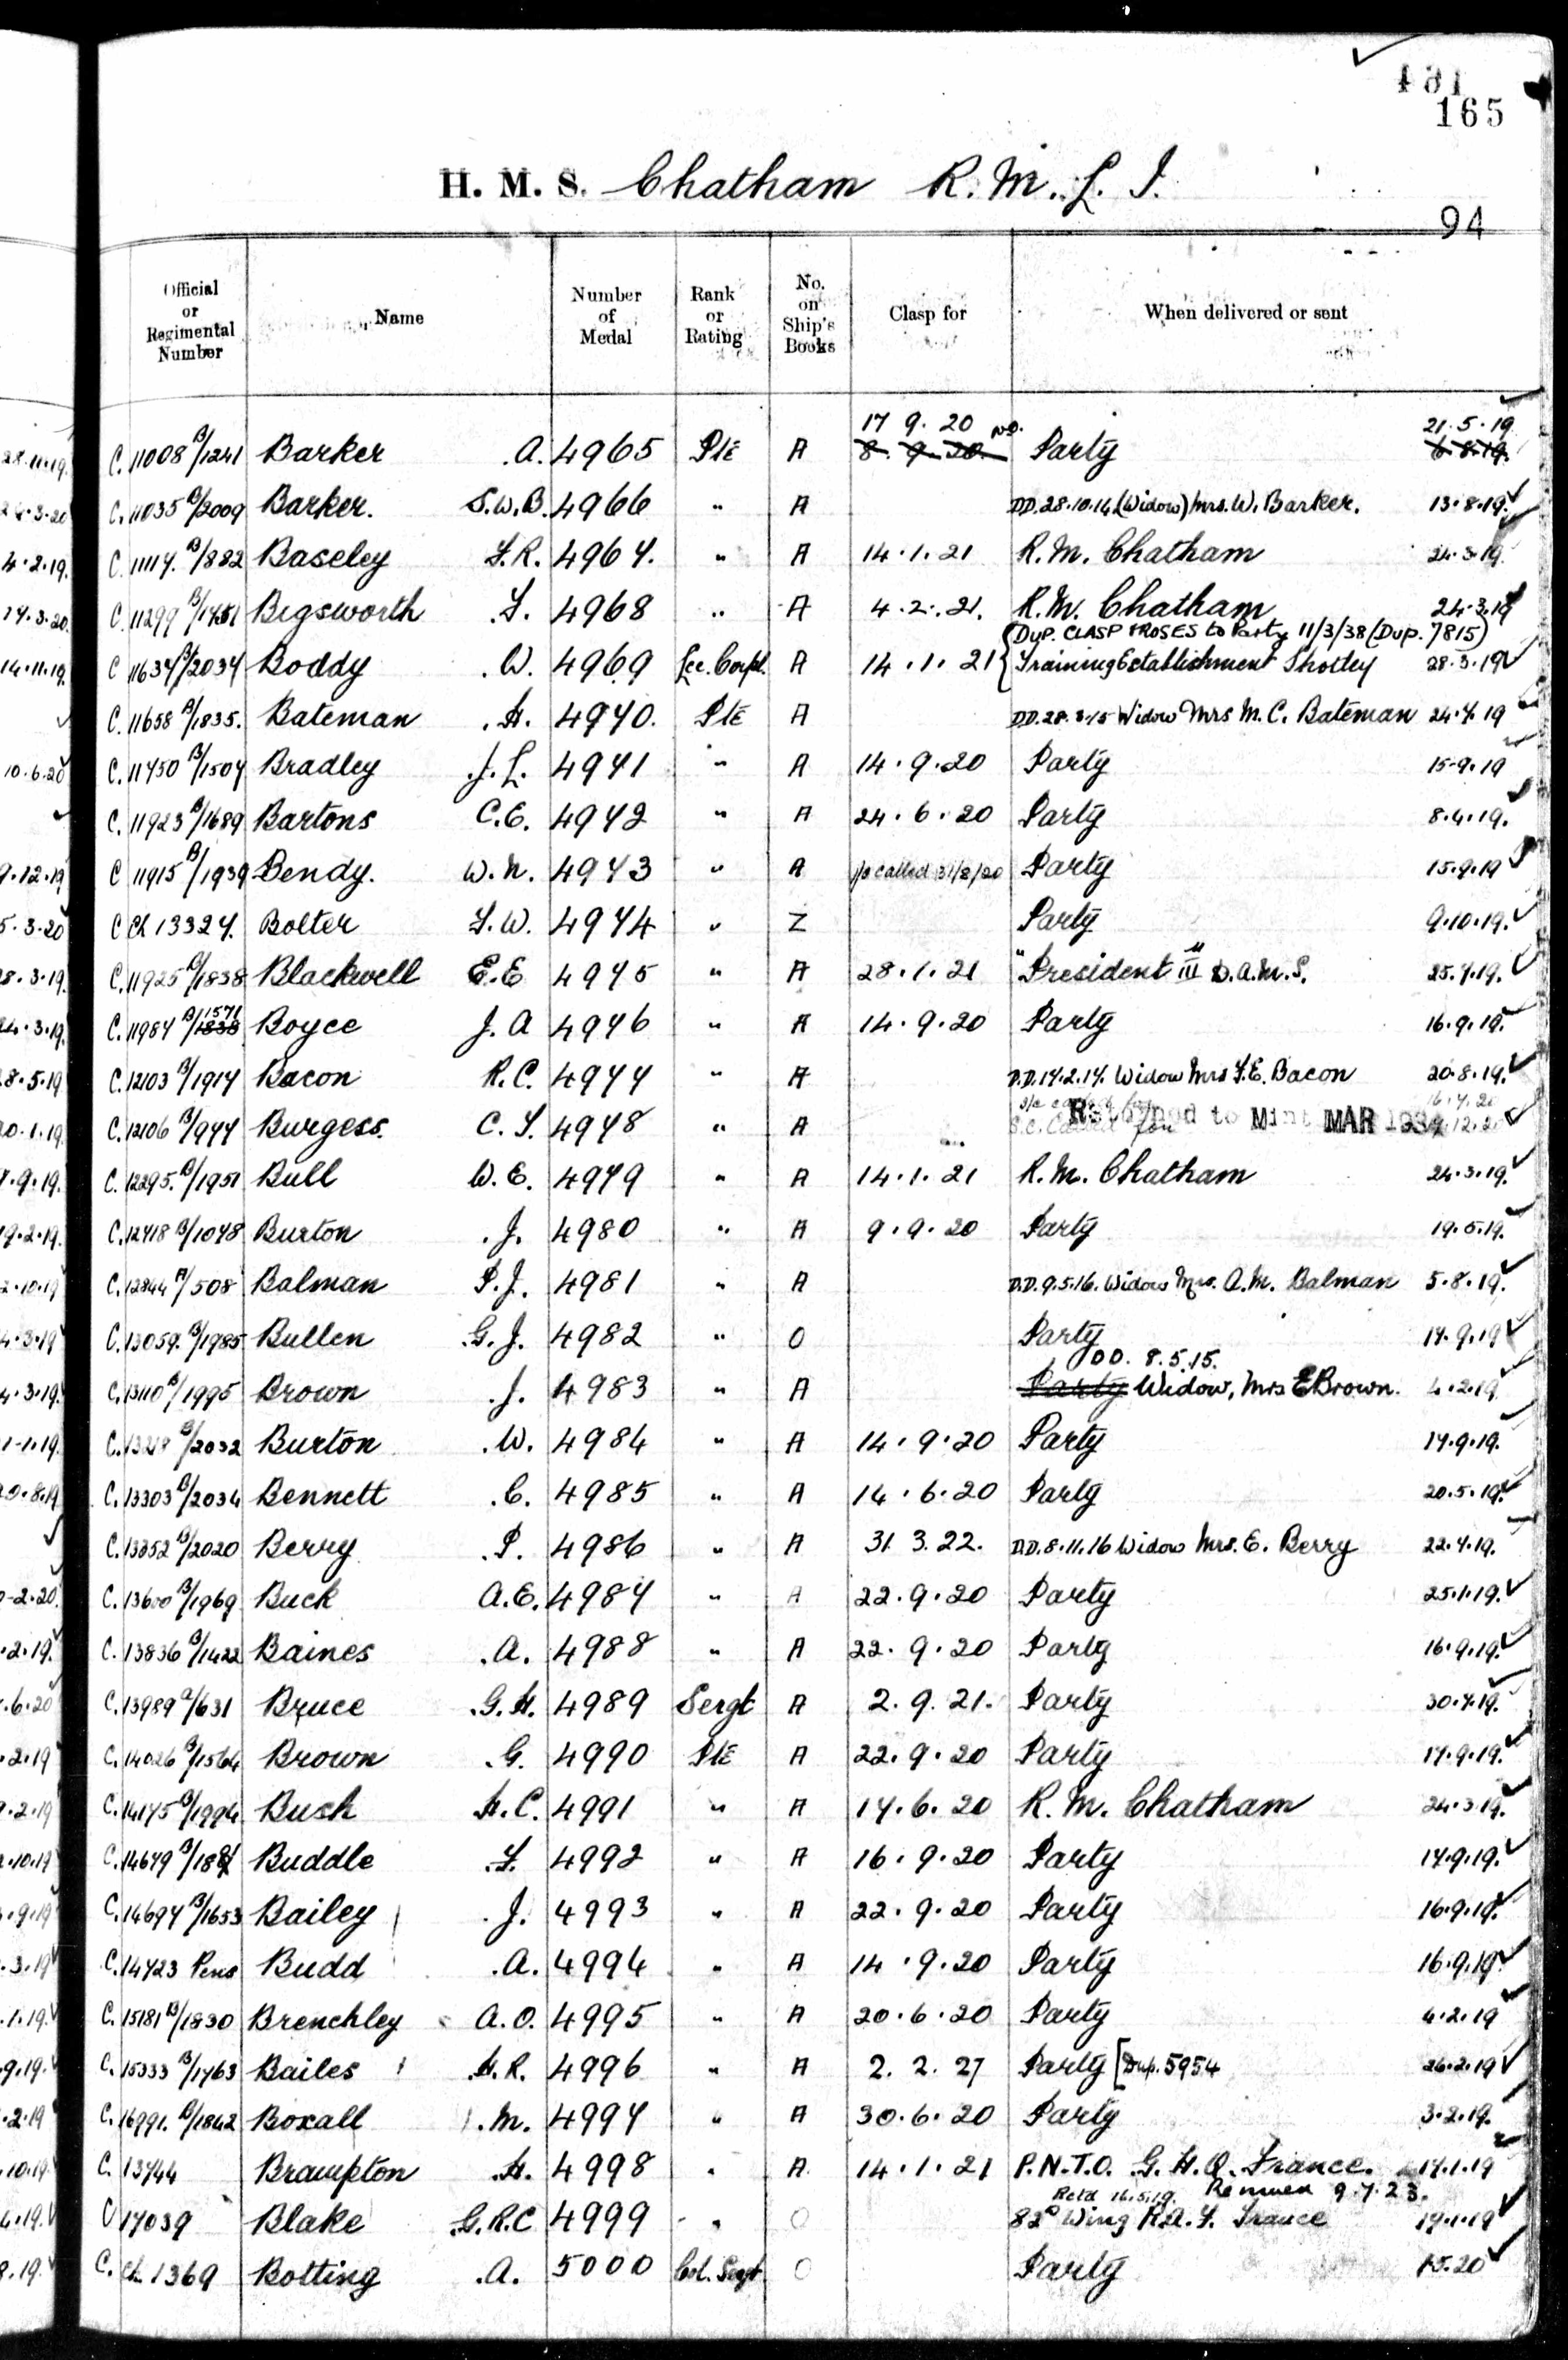 131
165
H. M. S. Chatham R. M. L. I.
94
Official or Regimental Number Name Number of Medal Rank or Rating No. on Ship's Books Clasp for When delivered or sent
17 9. 20 21.5.19
C. 11008 B/1241 Barker .A. 4965 Pte A 8. 9. 20 No. Party 6 8.19.
C. 11035 B/2009 Barker. S.W.B. 4966 " A D.D. 28.10.14 (Widow) Mrs. W. Barker. 13.8.19.
C. 11117. B/882 Baseley F.R. 4967. " A 14.1.21 R.M. Chatham 24.3.19.
C. 11299 B/1751 Bigsworth .F. 4968 " A 4.2.21. R.M. Chatham 24.3.19
{Dup. CLASP & ROSES to Party 11/3/38 (Dup. 7815)
C 11634 B/2034 Boddy .W. 4969 Lce. Corpl. A 14.1.21 Training Establishment Shotley 28.3.19
C. 11658 B/1835. Bateman .H. 4970. Pte A D.D. 28.3.15 Widow Mrs M. C. Bateman 24.7.19
C. 11750 B/1507 Bradley .J. L. 4971 " A 14.9.20 Party 15.9.19
C. 11923 B/1689 Bartons C.E. 4972 " A 24.6.20 Party 8.4.19.
C 11915 B/1939 Bendy. W.N. 4973 " A s/c called 31/8/20 Party 15.9.19
C Ch 13327. Bolter F.W. 4974 " Z Party 9.10.19.
C. 11925 B/1838 Blackwell E.E 4975 " A 28.1.21 "President III" D.A.M.S. 25.7.19.
C. 11987 B/1838 1571 Boyce J. A 4976 " A 14.9.20 Party 16.9.19.
C. 12103 B/1917 Bacon R.C. 4977 " A D.D. 17.2.17. Widow Mrs F.E. Bacon 20.8.19.
C. 12106 B/977 Burgess. C. F. 4978 " A Returned to Mint MAR 1934
C. 12295. B/1951 Bull W.E. 4979 " A 14.1.21 R.M. Chatham 24.3.19.
C. 12718 B/1078 Burton .J. 4980 " A 9.9.20 Party 19.5.19.
C. 12844 A/508 Balman P.J. 4981 " A D.D. 9.5.16. Widow Mrs. A.M. Balman 5.8.19.
C. 13059. B/1985 Bullen G.J. 4982 " O Party 17.9.19
DD. 8.5.15.
C. 13110 B/1995 Brown .J. 4983 " A Party Widow, Mrs E Brown. 4.2.19.
C. 13218 B/2032 Burton .W. 4984 " A 14.9.20 Party 17.9.19.
C. 13303 B/2034 Bennett .C. 4985 " A 14.6.20 Party 20.5.19.
C. 13352 B/2020 Berry .P. 4986 " A 31 3.22. D.D. 8.11.16 Widow Mrs. E. Berry 22.7.19.
C. 13600 B/1969 Buck A.E. 4987 " A 22.9.20 Party 25.1.19.
C. 13836 B/1422 Baines .A. 4988 " A 22.9.20 Party 16.9.19.
C. 13989 A/631 Bruce .G.H. 4989 Sergt A 2.9.21. Party 30.7.19.
C. 14026 B/1564 Brown .G. 4990 Pte A 22.9.20 Party 17.9.19.
C. 14175 B/1994 Bush H.C. 4991 " A 17.6.20 R.M. Chatham 24.3.19.
C. 14679 Buddle .F. 4992 " A 16.9.20 Party 17.9.19.
C. 14697 B/1653 Bailey .J. 4993 " A 22.9.20 Party 16.9.19.
C. 14723 Pens Budd .A. 4994 " A 14.9.20 Party 16.9.19
C. 15181 B/1830 Brenchley A.O. 4995 " A 20.6.20 Party 4.2.19
C. 15333 B/1763 Bailes H.R. 4996 " A 2.2.27 Party [Dup. 5954 26.2.19
C. 16991. B/1842 Boxall .M. 4997 " A 30.6.20 Party 3.2.19.
C. 13744 Brampton .H. 4998 " A 14.1.21 P.N.T.O. G.H.Q. France. 17.1.19
Retd 16.5.19. Reissued 9.7.23.
C 17039 Blake G.R.C 4999 " O 82nd Wing R.A.F. France 17.1.19
C. Ch. 1369 Botting .A. 5000 Col. Sergt O Party 1.5.20